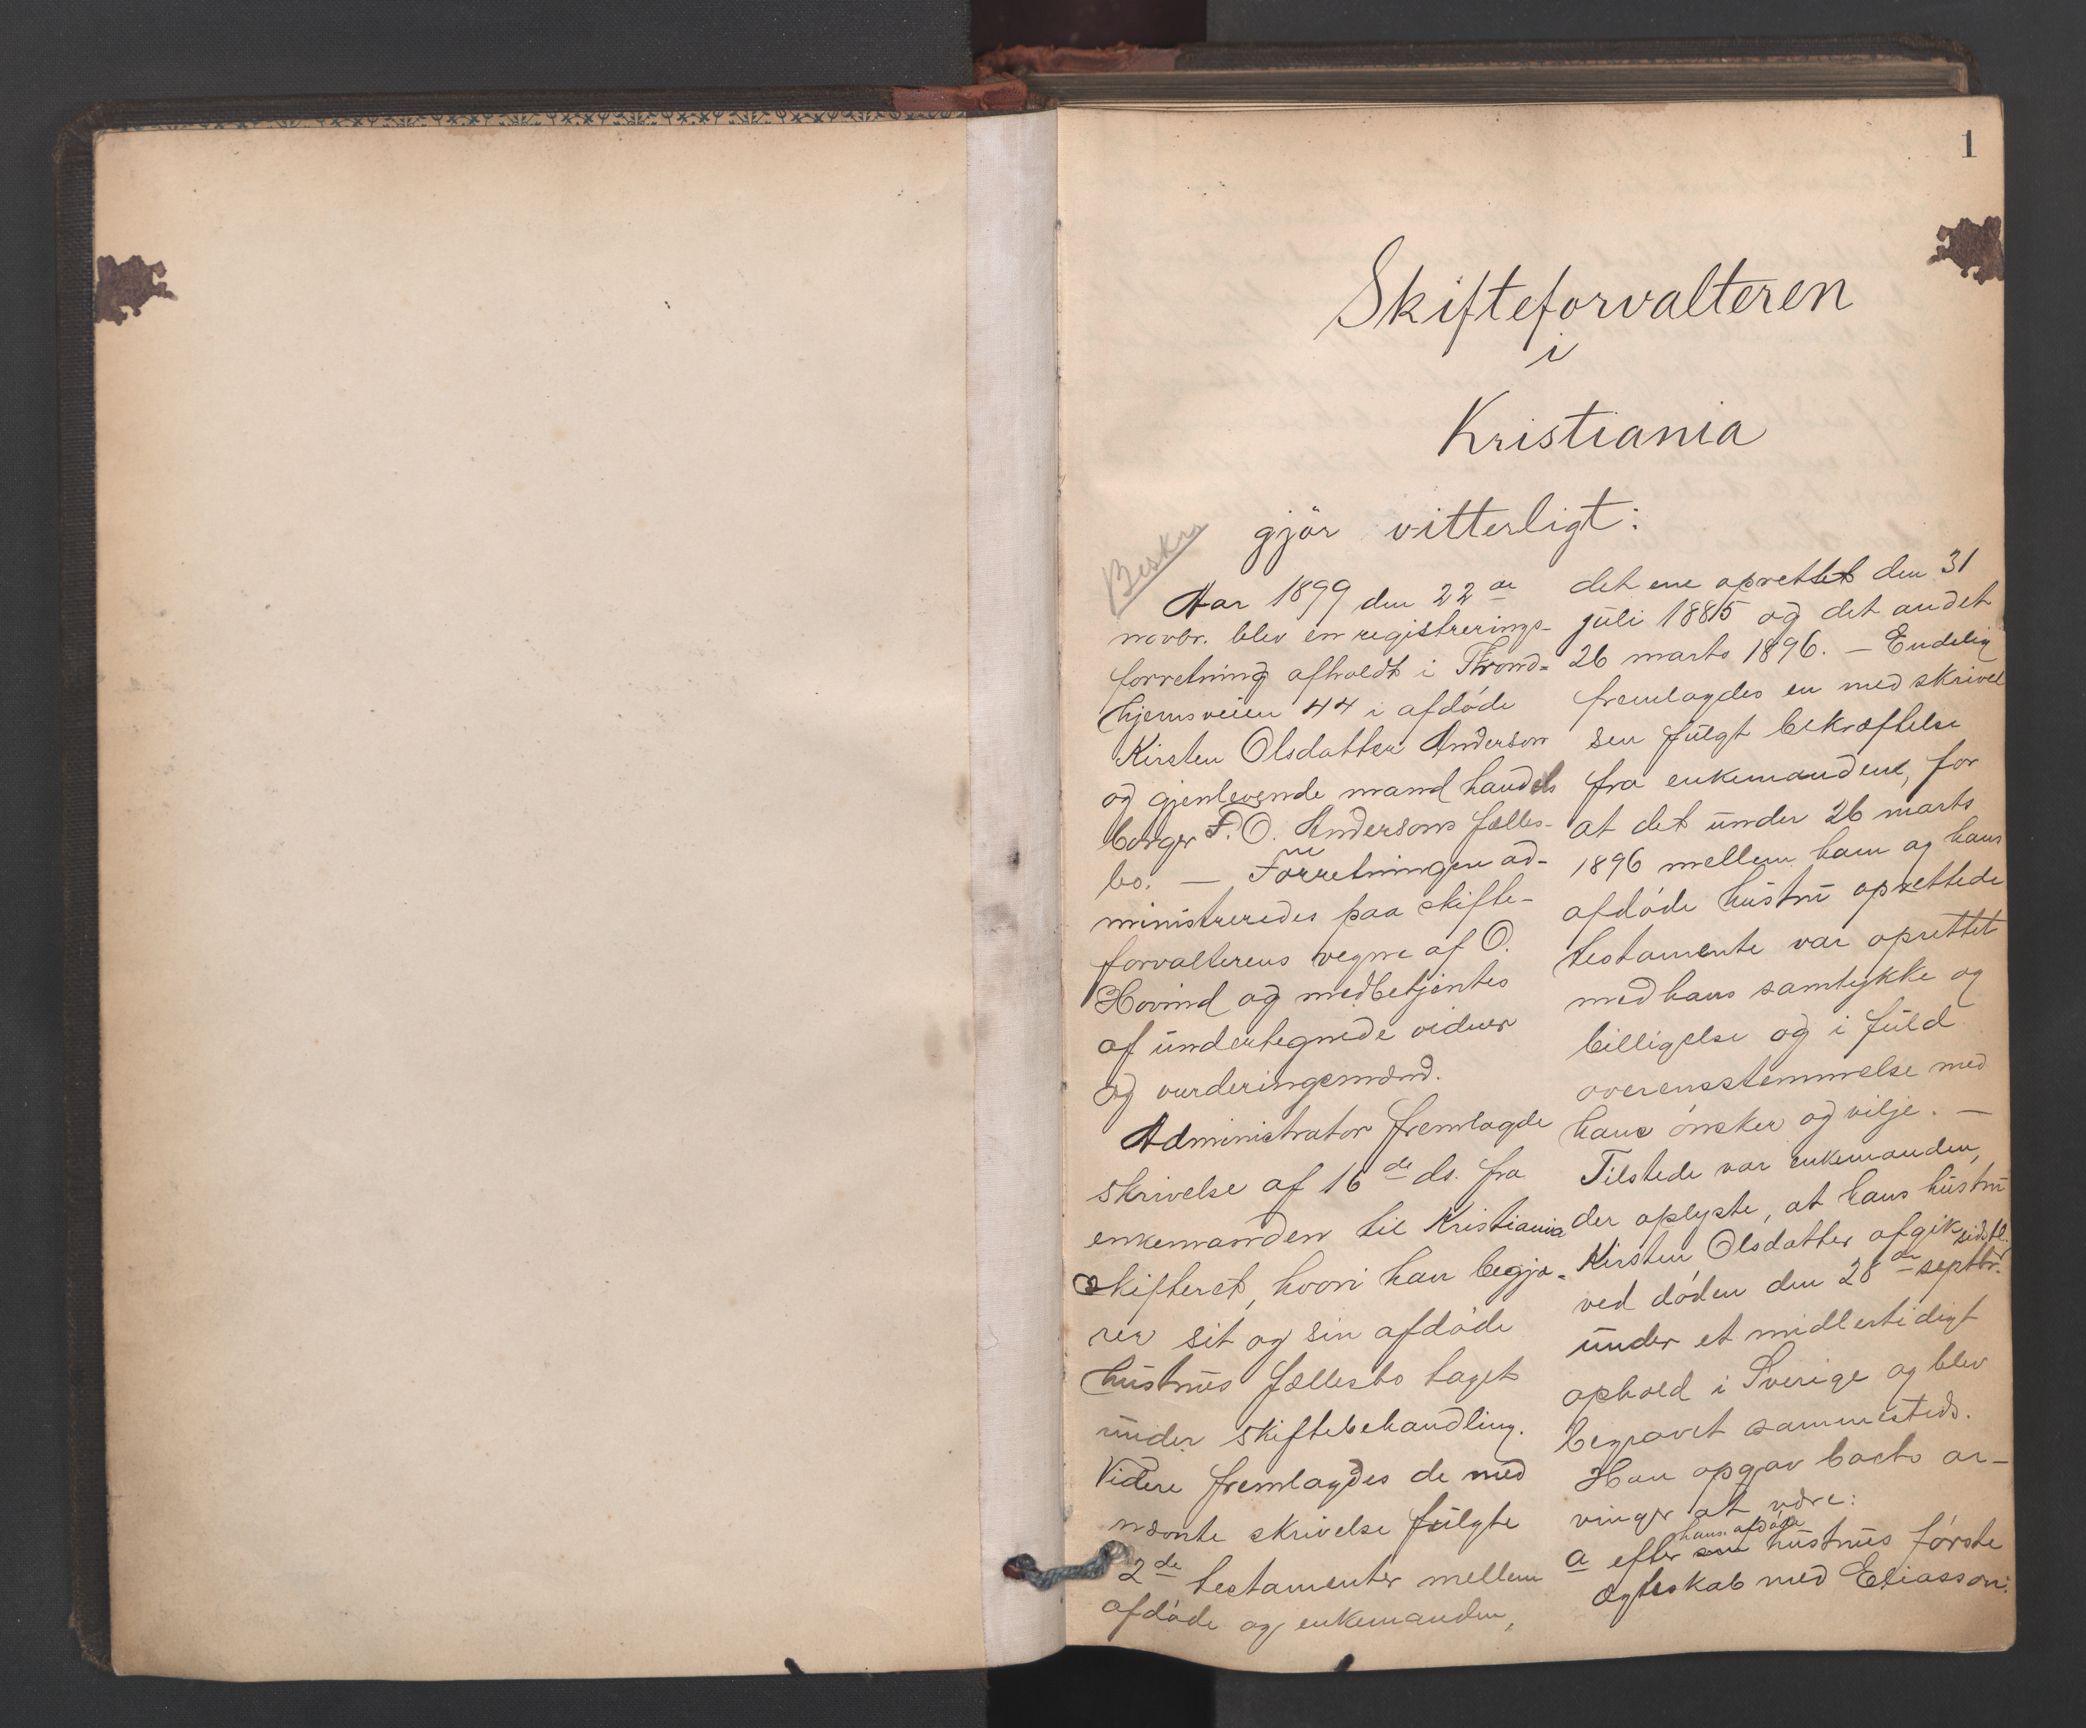 1
Skifteforvalteren
i
Kristiania
gjör vitterligt:
Beskr
Aar 1899 den 22de
novbr. blev en registrerings-
forretning afholdt i Thrond-
hjemsveien 44 i afdøde
Kirsten Olsdatter Anderson
og gjenlevende mand handels
borger F. O. Andersons fælles-
bo. — Forretningen ad-
ministreredes paa skifte-
forvalterens vegne af O.
Hovind og medbetjentes
af undertegnede vidner
og vurderingsmænd.
Administrator fremlagde
skrivelse af 16de ds. fra
enkemanden til Kristiania
skifteret, hvori han begjæ-
rer sit og sin afdøde
hustrus fællesbo taget
under skiftebehandling.
Videre fremlagdes de med
nævnte skrivelse fulgte
2de testamenter mellem
afdøde og enkemanden,
det ene oprettet den 31
juli 1885 og det andet
26 marts 1896. — Endelig
fremlagdes en med skrivel
sen fulgt bekræftelse
fra enkemanden, for
at det under 26 marts
1896 mellem ham og hans
afdøde hustru oprettede
testamente var oprettet
med hans samtykke og
billigelse og i fuld
overensstemmelse med
hans ønsker og vilje. —
Tilstede var enkemanden,
der oplyste, at hans hustru
Kirsten Olsdatter afgik sidstl.
ved døden den 28de septbr.
under et midlertidigt
ophold i Sverige og blev
begravet sammesteds.
Han opgav boets ar-
vinger at være:
hans afdøde
a efter sin hustrus første
ægteskab med Eliasson: